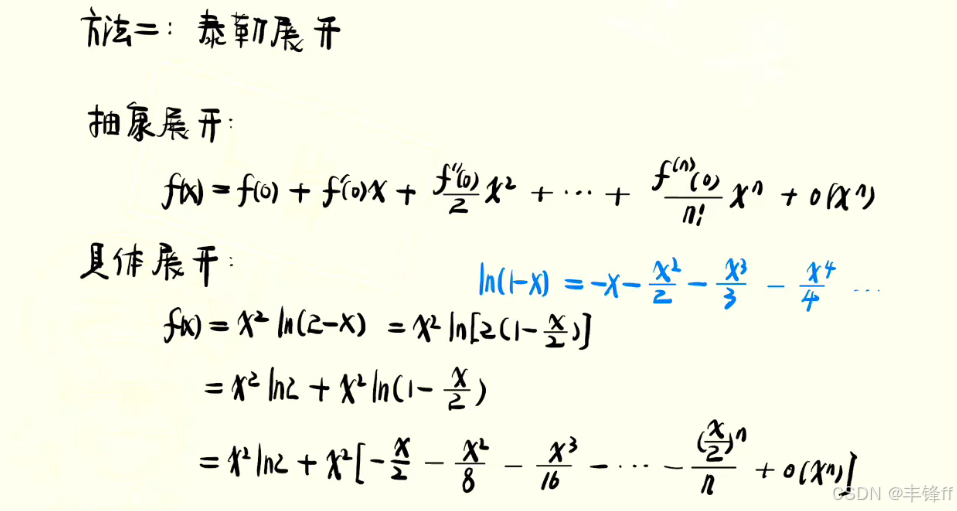 方法二：泰勒展开
抽象展开：
f(x) = f(0) + f'(0)x + f''(0)/2 x² + ⋯ + f⁽ⁿ⁾(0)/n! xⁿ + o(xⁿ)
具体展开：
ln(1-x) = -x - x²/2 - x³/3 - x⁴/4 ...
f(x) = x² ln(2-x) = x² ln[2(1-x/2)]
= x² ln2 + x² ln(1-x/2)
= x² ln2 + x²[-x/2 - x²/8 - x³/16 - ⋯ - (x/2)ⁿ/n + o(xⁿ)]
CSDN @丰锋ff